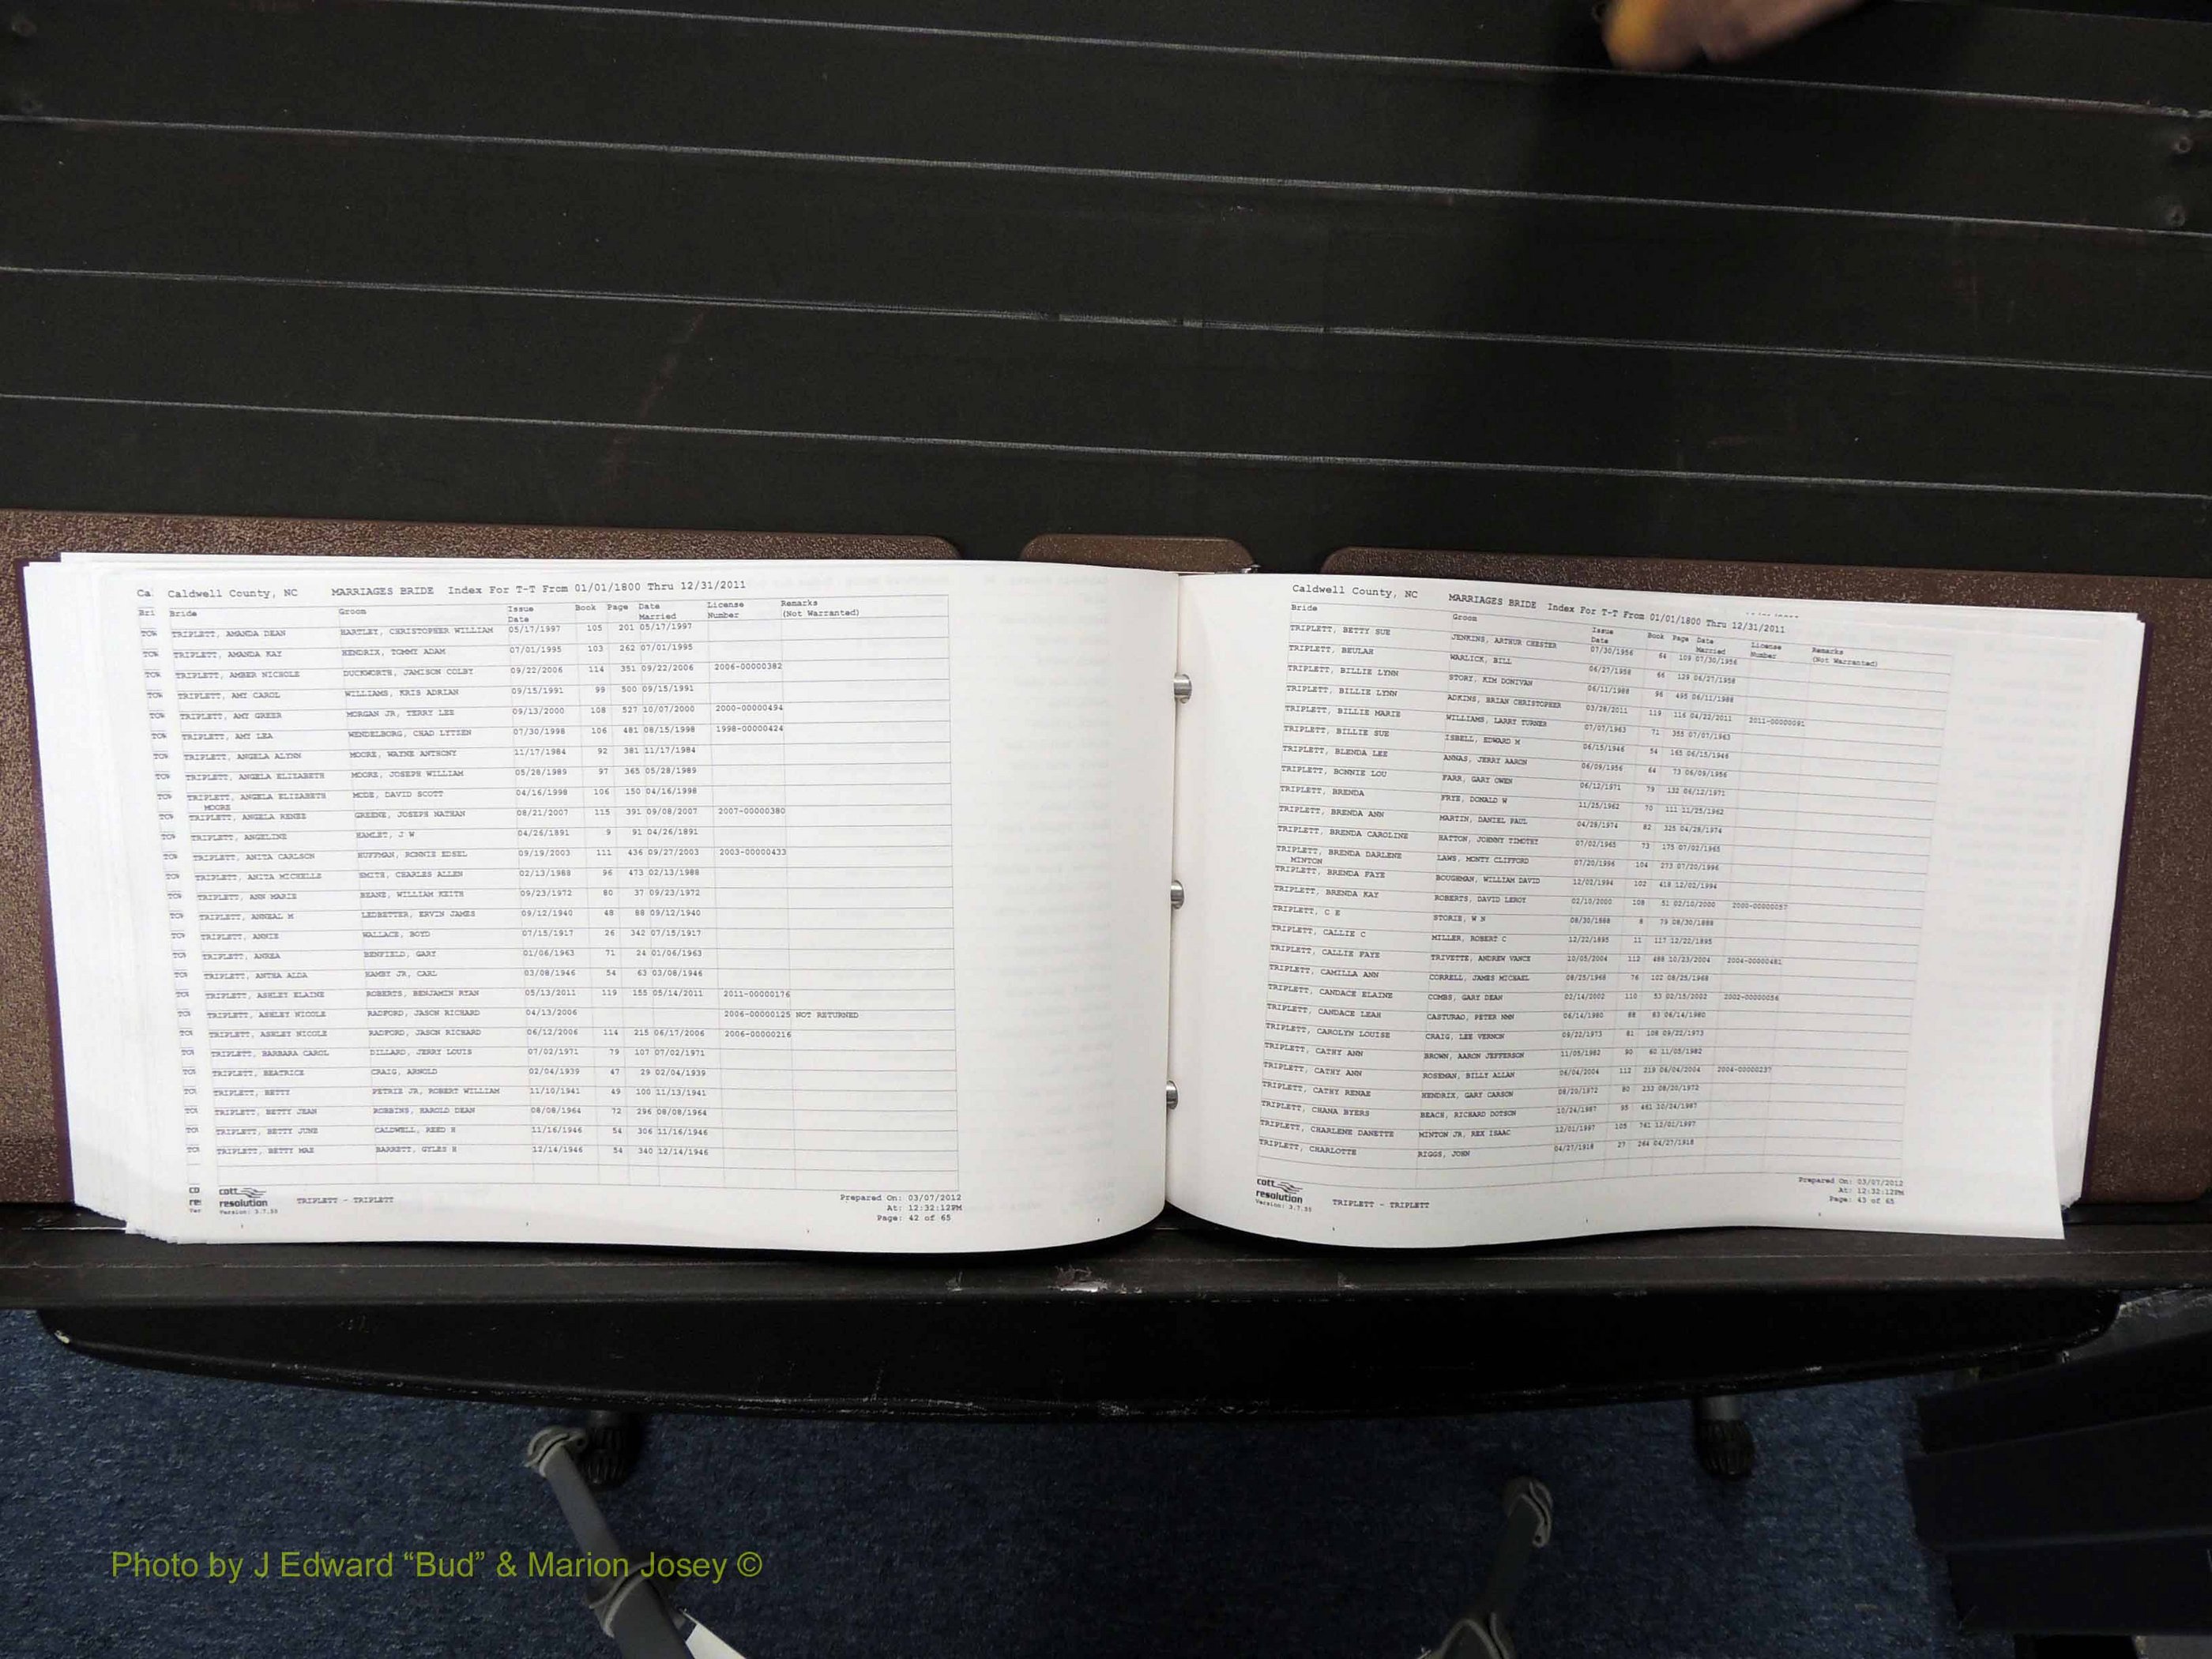 Ca. Caldwell County, NC MARRIAGES BRIDE Index For T-T From 01/01/1800 Thru 12/31/2011
Bri Bride Groom Issue Date Book Page Date Married License Number Remarks (Not Warranted)
TRIPLETT, AMANDA DEAN HARTLEY, CHRISTOPHER WILLIAM 05/17/1997 105 201 05/17/1997
TRIPLETT, AMANDA KAY HENDRIX, TOMMY ADAM 07/01/1995 103 262 07/01/1995
TRIPLETT, AMBER NICHOLE DUCKWORTH, JAMISON COLBY 09/22/2006 114 351 09/22/2006 2006-00000382
TRIPLETT, AMY CAROL WILLIAMS, KRIS ADRIAN 09/15/1991 99 500 09/15/1991
TRIPLETT, AMY GREER MORGAN JR, TERRY LEE 09/13/2000 108 527 10/07/2000 2000-00000494
TRIPLETT, AMY LEA WENDELBORG, CHAD LYTSEN 07/30/1998 106 481 08/15/1998 1998-00000424
TRIPLETT, ANGELA ALYNN MOORE, WAYNE ANTHONY 11/17/1984 92 381 11/17/1984
TRIPLETT, ANGELA ELIZABETH MOORE, JOSEPH WILLIAM 05/28/1989 97 365 05/28/1989
TRIPLETT, ANGELA ELIZABETH MOORE MODE, DAVID SCOTT 04/16/1998 106 150 04/16/1998
TRIPLETT, ANGELA RENEE GREENE, JOSEPH NATHAN 08/21/2007 115 391 09/08/2007 2007-00000380
TRIPLETT, ANGELINE HAMLET, J W 04/26/1891 9 91 04/26/1891
TRIPLETT, ANITA CARLSON HUFFMAN, RONNIE EDSEL 09/19/2003 111 436 09/27/2003 2003-00000433
TRIPLETT, ANITA MICHELLE SMITH, CHARLES ALLEN 02/13/1988 96 473 02/13/1988
TRIPLETT, ANN MARIE BEANE, WILLIAM KEITH 09/23/1972 80 37 09/23/1972
TRIPLETT, ANNEAL M LEDBETTER, ERVIN JAMES 09/12/1940 48 88 09/12/1940
TRIPLETT, ANNIE WALLACE, BOYD 07/15/1917 26 342 07/15/1917
TRIPLETT, ANREA BENFIELD, GARY 01/06/1963 71 24 01/06/1963
TRIPLETT, ANTHA ALDA HAMBY JR, CARL 03/08/1946 54 63 03/08/1946
TRIPLETT, ASHLEY ELAINE ROBERTS, BENJAMIN RYAN 05/13/2011 119 155 05/14/2011 2011-00000176
TRIPLETT, ASHLEY NICOLE RADFORD, JASON RICHARD 04/13/2006 2006-00000125 NOT RETURNED
TRIPLETT, ASHLEY NICOLE RADFORD, JASON RICHARD 06/12/2006 114 215 06/17/2006 2006-00000216
TRIPLETT, BARBARA CAROL DILLARD, JERRY LOUIS 07/02/1971 79 107 07/02/1971
TRIPLETT, BEATRICE CRAIG, ARNOLD 02/04/1939 47 29 02/04/1939
TRIPLETT, BETTY PETRIE JR, ROBERT WILLIAM 11/10/1941 49 100 11/13/1941
TRIPLETT, BETTY JEAN ROBBINS, HAROLD DEAN 08/08/1964 72 296 08/08/1964
TRIPLETT, BETTY JUNE CALDWELL, REED H 11/16/1946 54 306 11/16/1946
TRIPLETT, BETTY MAE BARRETT, GYLES H 12/14/1946 54 340 12/14/1946
cott resolution Version: 3.7.33 TRIPLETT - TRIPLETT
Prepared On: 03/07/2012
At: 12:32:12PM
Page: 42 of 65
Caldwell County, NC MARRIAGES BRIDE Index For T-T From 01/01/1800 Thru 12/31/2011
Bride Groom Issue Date Book Page Date Married License Number Remarks (Not Warranted)
TRIPLETT, BETTY SUE JENKINS, ARTHUR CHESTER 07/30/1956 64 109 07/30/1956
TRIPLETT, BEULAH WARLICK, BILL 06/27/1958 66 129 06/27/1958
TRIPLETT, BILLIE LYNN STORY, KIM DONIVAN 06/11/1988 96 495 06/11/1988
TRIPLETT, BILLIE LYNN ADKINS, BRIAN CHRISTOPHER 03/28/2011 119 116 04/22/2011 2011-00000091
TRIPLETT, BILLIE MARIE WILLIAMS, LARRY TURNER 07/07/1963 71 355 07/07/1963
TRIPLETT, BILLIE SUE ISBELL, EDWARD M 06/15/1946 54 165 06/15/1946
TRIPLETT, BLENDA LEE ANNAS, JERRY AARON 06/09/1956 64 73 06/09/1956
TRIPLETT, BONNIE LOU FARR, GARY OWEN 06/12/1971 79 132 06/12/1971
TRIPLETT, BRENDA FRYE, DONALD W 11/25/1962 70 111 11/25/1962
TRIPLETT, BRENDA ANN MARTIN, DANIEL PAUL 04/28/1974 82 325 04/28/1974
TRIPLETT, BRENDA CAROLINE HATTON, JOHNNY TIMOTHY 07/02/1965 73 175 07/02/1965
TRIPLETT, BRENDA DARLENE MINTON LAWS, MONTY CLIFFORD 07/20/1996 104 273 07/20/1996
TRIPLETT, BRENDA FAYE BOUGHMAN, WILLIAM DAVID 12/02/1994 102 418 12/02/1994
TRIPLETT, BRENDA KAY ROBERTS, DAVID LEROY 02/10/2000 108 51 02/10/2000 2000-00000057
TRIPLETT, C E STORIE, W N 08/30/1888 8 79 08/30/1888
TRIPLETT, CALLIE C MILLER, ROBERT C 12/22/1895 11 117 12/22/1895
TRIPLETT, CALLIE FAYE TRIVETTE, ANDREW VANCE 10/05/2004 112 488 10/23/2004 2004-00000481
TRIPLETT, CAMILLA ANN CORRELL, JAMES MICHAEL 08/25/1968 76 102 08/25/1968
TRIPLETT, CANDACE ELAINE COMBS, GARY DEAN 02/14/2002 110 53 02/15/2002 2002-00000056
TRIPLETT, CANDACE LEAH CASTURAO, PETER NMN 06/14/1980 88 83 06/14/1980
TRIPLETT, CAROLYN LOUISE CRAIG, LEE VERNON 09/22/1973 81 108 09/22/1973
TRIPLETT, CATHY ANN BROWN, AARON JEFFERSON 11/05/1982 90 60 11/05/1982
TRIPLETT, CATHY ANN ROSEMAN, BILLY ALLAN 06/04/2004 112 219 06/04/2004 2004-00000237
TRIPLETT, CATHY RENAE HENDRIX, GARY CARSON 08/20/1972 80 233 08/20/1972
TRIPLETT, CHANA BYERS BEACH, RICHARD DOTSON 10/24/1987 95 461 10/24/1987
TRIPLETT, CHARLENE DANETTE MINTON JR, REX ISAAC 12/01/1997 105 761 12/01/1997
TRIPLETT, CHARLOTTE RIGGS, JOHN 04/27/1918 27 264 04/27/1918
cott resolution Version: 3.7.33 TRIPLETT - TRIPLETT
Prepared On: 03/07/2012
At: 12:32:12PM
Page: 43 of 65
Photo by J Edward “Bud” & Marion Josey ©